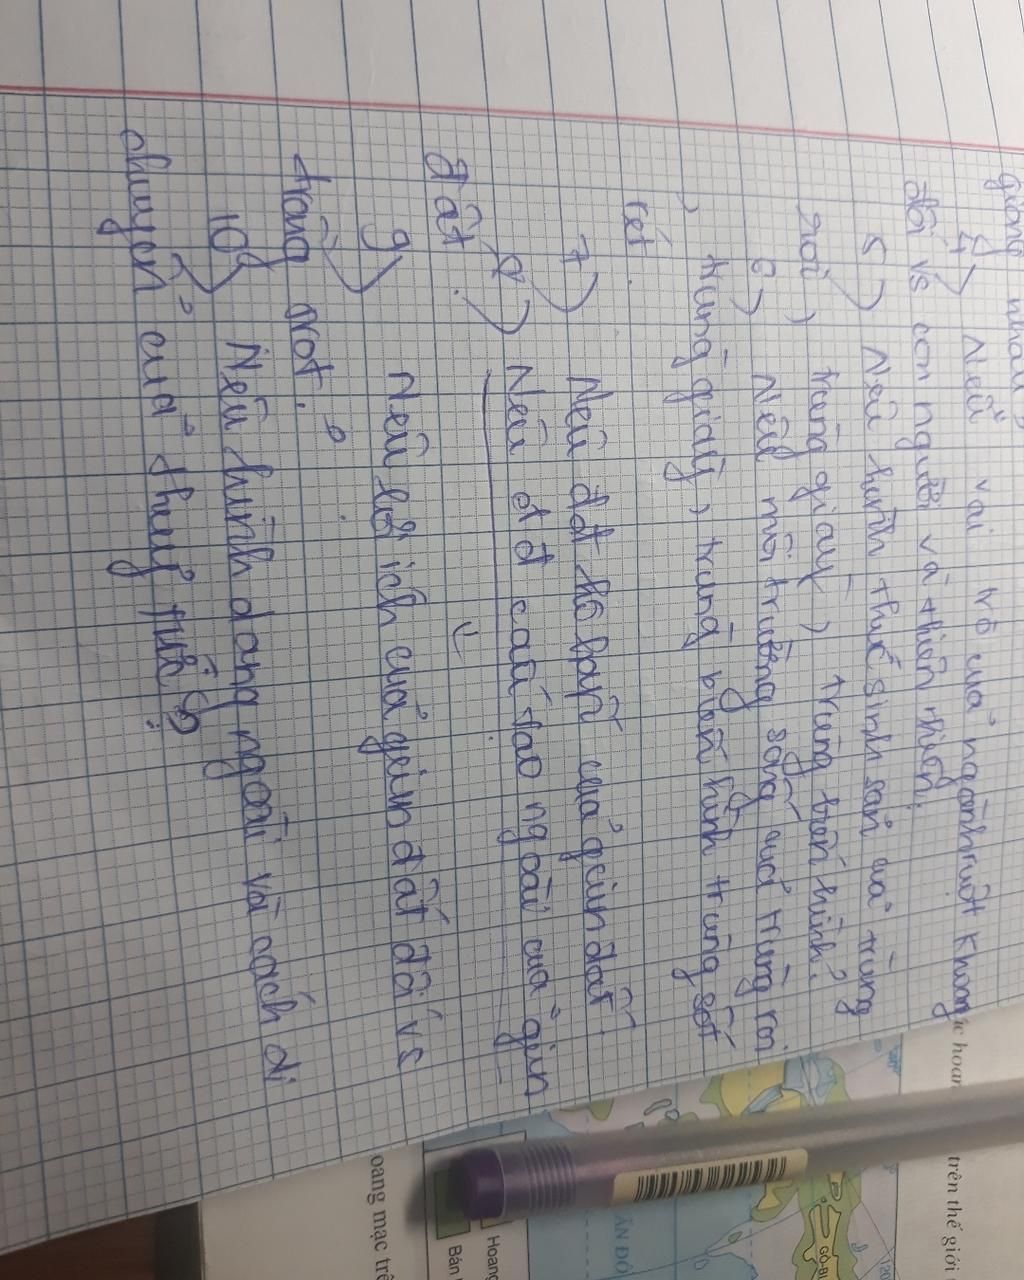 giống nhau,
4) Nêu vai trò của ngành ruột khoang
đối vs con người và thiên nhiên.
5) Nêu hình thức sinh sản của trùng
roi, trùng giày, trùng biến hình?
6) Nêu môi trường sống của trùng roi
, trùng giày, trùng biến hình trùng sốt
rét.
7) Nêu đđ hô hấp của giun đất.
8) Nêu đđ cấu tạo ngoài của giun
đất.
9) Nêu lợi ích của giun đất đối vs
trồng trọt.
10) Nêu hình dạng ngoài và cách di
chuyển của thuỷ tức
trên thế giới
ẤN ĐỘ
GÔ-BI
Hoang
Bán
oang mạc trê